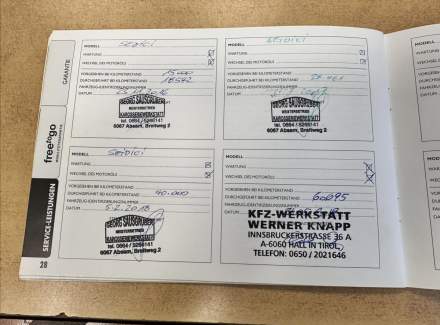 GARANTIE
freetogo
SERVICE-LEISTUNGEN
28
MODELL Sedici
WARTUNG
WECHSEL DES MOTORÖLS
VORGESEHEN BEI KILOMETERSTAND
DURCHGEFÜHRT BEI KILOMETERSTAND
FAHRZEUG-IDENTIFIZIERUNGSNUMMER
DATUM
GEORG SAUSGRUBER
MEISTERBETRIEB
KAROSSERIEWERKSTATT
6067 Absam, Breitweg 2
MODELL Sedici
WARTUNG
WECHSEL DES MOTORÖLS
VORGESEHEN BEI KILOMETERSTAND
DURCHGEFÜHRT BEI KILOMETERSTAND
FAHRZEUG-IDENTIFIZIERUNGSNUMMER
DATUM
GEORG SAUSGRUBER
MEISTERBETRIEB
KAROSSERIEWERKSTATT
6067 Absam, Breitweg 2
MODELL Sedici
WARTUNG
WECHSEL DES MOTORÖLS
VORGESEHEN BEI KILOMETERSTAND
DURCHGEFÜHRT BEI KILOMETERSTAND 40.000
FAHRZEUG-IDENTIFIZIERUNGSNUMMER
DATUM 5.2.2018
GEORG SAUSGRUBER
MEISTERBETRIEB
KAROSSERIEWERKSTATT
6067 Absam, Breitweg 2
MODELL
WARTUNG
WECHSEL DES MOTORÖLS
VORGESEHEN BEI KILOMETERSTAND
DURCHGEFÜHRT BEI KILOMETERSTAND 60095
FAHRZEUG-IDENTIFIZIERUNGSNUMMER
DATUM
KFZ-WERKSTÄTT
WERNER KNAPP
INNSBRUCKERSTRASSE 36 A
A-6060 HALL IN TIROL
TELEFON: 0650 / 2021646